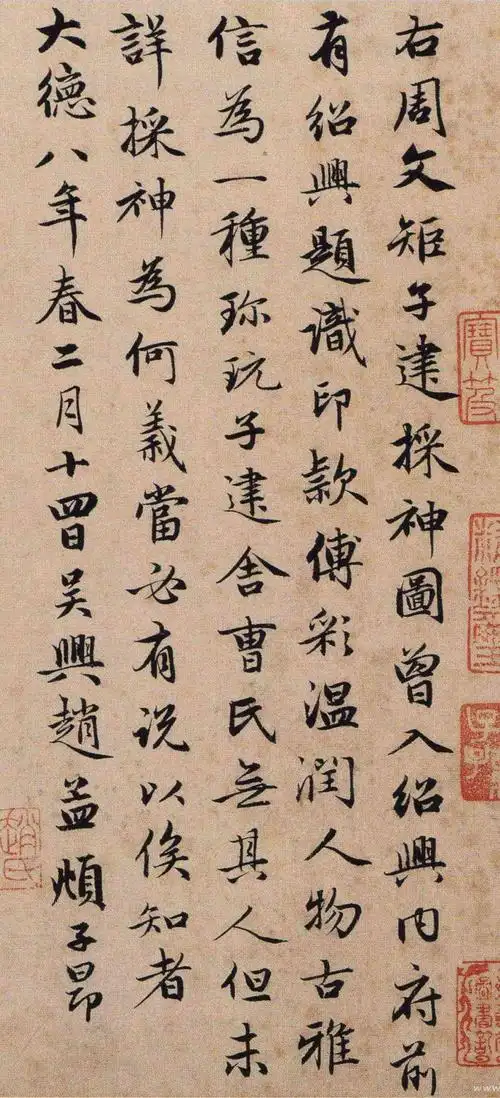 右周文矩子建採神圖曾入紹興內府前
有紹興題識印款傅彩温潤人物古雅
信為一種珎玩子建舍曹氏無其人但未
詳採神為何義當必有説以俟知者
大德八年春二月十四日吴興趙孟頫子昂
趙氏
www